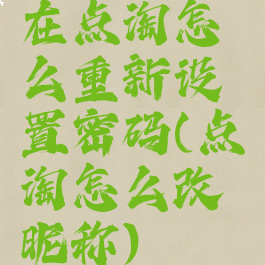 在点淘怎
么重新设
置密码(点
淘怎么改
昵称)